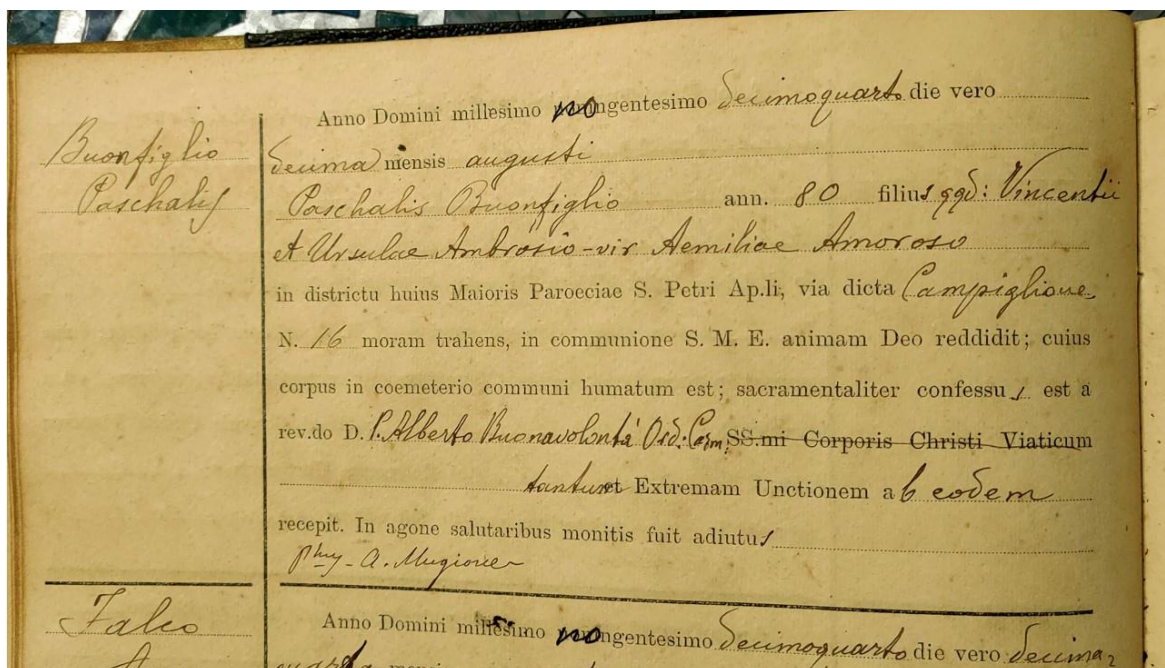 Buonfiglio
Paschalis
Anno Domini millesimo nongentesimo decimoquarto die vero
decima mensis augusti
Paschalis Buonfiglio ann. 80 filius qqd: Vincentii
et Ursulae Ambrosio - vir Aemiliae Amoroso
in districtu huius Maioris Paroeciae S. Petri Ap.li, via dicta Campiglione
N. 16 moram trahens, in communione S. M. E. animam Deo reddidit; cuius
corpus in coemeterio communi humatum est; sacramentaliter confessus est a
rev.do D. P. Alberto Buonavolontà Ord: Carm. SS.mi Corporis Christi Viaticum
tantum et Extremam Unctionem ab eodem
recepit. In agone salutaribus monitis fuit adiutus
A. Mugione
Falco
Anno Domini millesimo nongentesimo decimoquarto die vero decima
quarta